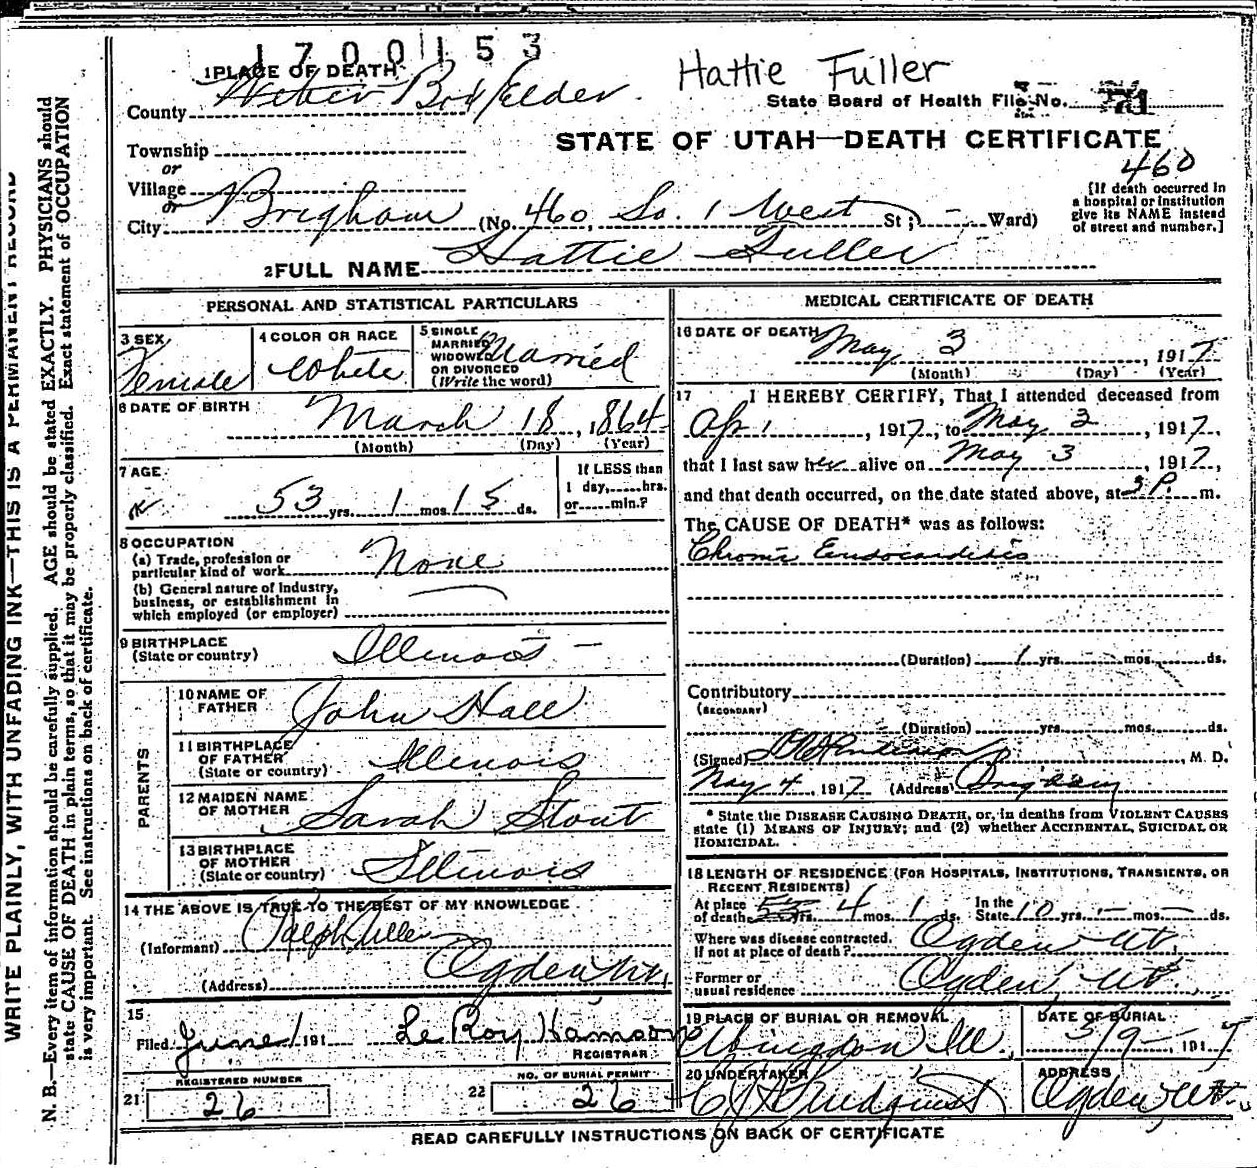 1700153
Hattie Fuller
1 PLACE OF DEATH
County Weber Box Elder.
State Board of Health File No.
STATE OF UTAH—DEATH CERTIFICATE
460
Township
or
Village
or
City Brigham (No. 460 So. 1 West St; - Ward)
[If death occurred in
a hospital or institution
give its NAME instead
of street and number.]
2 FULL NAME Hattie Fuller
PERSONAL AND STATISTICAL PARTICULARS
3 SEX
Female
4 COLOR OR RACE
White
5 SINGLE
MARRIED
WIDOWED
OR DIVORCED
(Write the word)
Married
6 DATE OF BIRTH
March 18, 1864
(Month) (Day) (Year)
7 AGE
53 yrs. 1 mos. 15 ds.
If LESS than
1 day, hrs.
or min.?
8 OCCUPATION
(a) Trade, profession or
particular kind of work None
(b) General nature of industry,
business, or establishment in
which employed (or employer)
9 BIRTHPLACE
(State or country) Illinois -
PARENTS
10 NAME OF
FATHER John Hall
11 BIRTHPLACE
OF FATHER
(State or country) Illinois
12 MAIDEN NAME
OF MOTHER Sarah Stout
13 BIRTHPLACE
OF MOTHER
(State or country) Illinois
14 THE ABOVE IS TRUE TO THE BEST OF MY KNOWLEDGE
(Informant) Ralph Fuller
(Address) Ogden Ut.
15
Filed June 1 191
Le Roy
REGISTRAR
REGISTERED NUMBER
21 26
NO. OF BURIAL PERMIT
22 26
MEDICAL CERTIFICATE OF DEATH
16 DATE OF DEATH
May 3, 1917
(Month) (Day) (Year)
17 I HEREBY CERTIFY, That I attended deceased from
Apr 1, 1917, to May 3, 1917,
that I last saw her alive on May 3, 1917,
and that death occurred, on the date stated above, at 3 P. m.
The CAUSE OF DEATH* was as follows:
Chronic Endocarditis
(Duration) 1 yrs. - mos. ds.
Contributory
(SECONDARY)
(Duration) yrs. mos. ds.
(Signed) M. D.
May 4, 1917 (Address) Brigham
* State the DISEASE CAUSING DEATH, or, in deaths from VIOLENT CAUSES
state (1) MEANS OF INJURY; and (2) whether ACCIDENTAL, SUICIDAL OR
HOMICIDAL.
18 LENGTH OF RESIDENCE (FOR HOSPITALS, INSTITUTIONS, TRANSIENTS, OR
RECENT RESIDENTS)
At place
of death yrs. 4 mos. 1 ds.
In the
State 10 yrs. - mos. - ds.
Where was disease contracted,
If not at place of death? Ogden Ut.
Former or
usual residence Ogden, Ut.
19 PLACE OF BURIAL OR REMOVAL
Abingdon Ill.,
DATE OF BURIAL
5/9-, 1917
20 UNDERTAKER
ADDRESS
Ogden, Ut.
READ CAREFULLY INSTRUCTIONS ON BACK OF CERTIFICATE
WRITE PLAINLY, WITH UNFADING INK—THIS IS A PERMANENT RECORD
N. B.—Every item of information should be carefully supplied. AGE should be stated EXACTLY. PHYSICIANS should
state CAUSE OF DEATH in plain terms, so that it may be properly classified. Exact statement of OCCUPATION
is very important. See instructions on back of certificate.